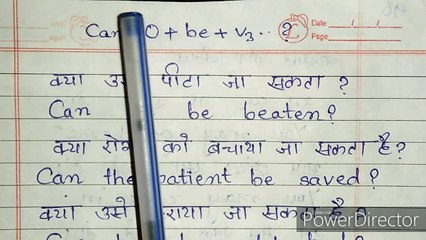 Can O + be + V3 .. ?
Date / /
Page
क्या पीटा जा सकता ?
Can be beaten?
क्या को बचाया जा सकता है?
Can the be saved?
क्या उसे जा सकता है ?
PowerDirector